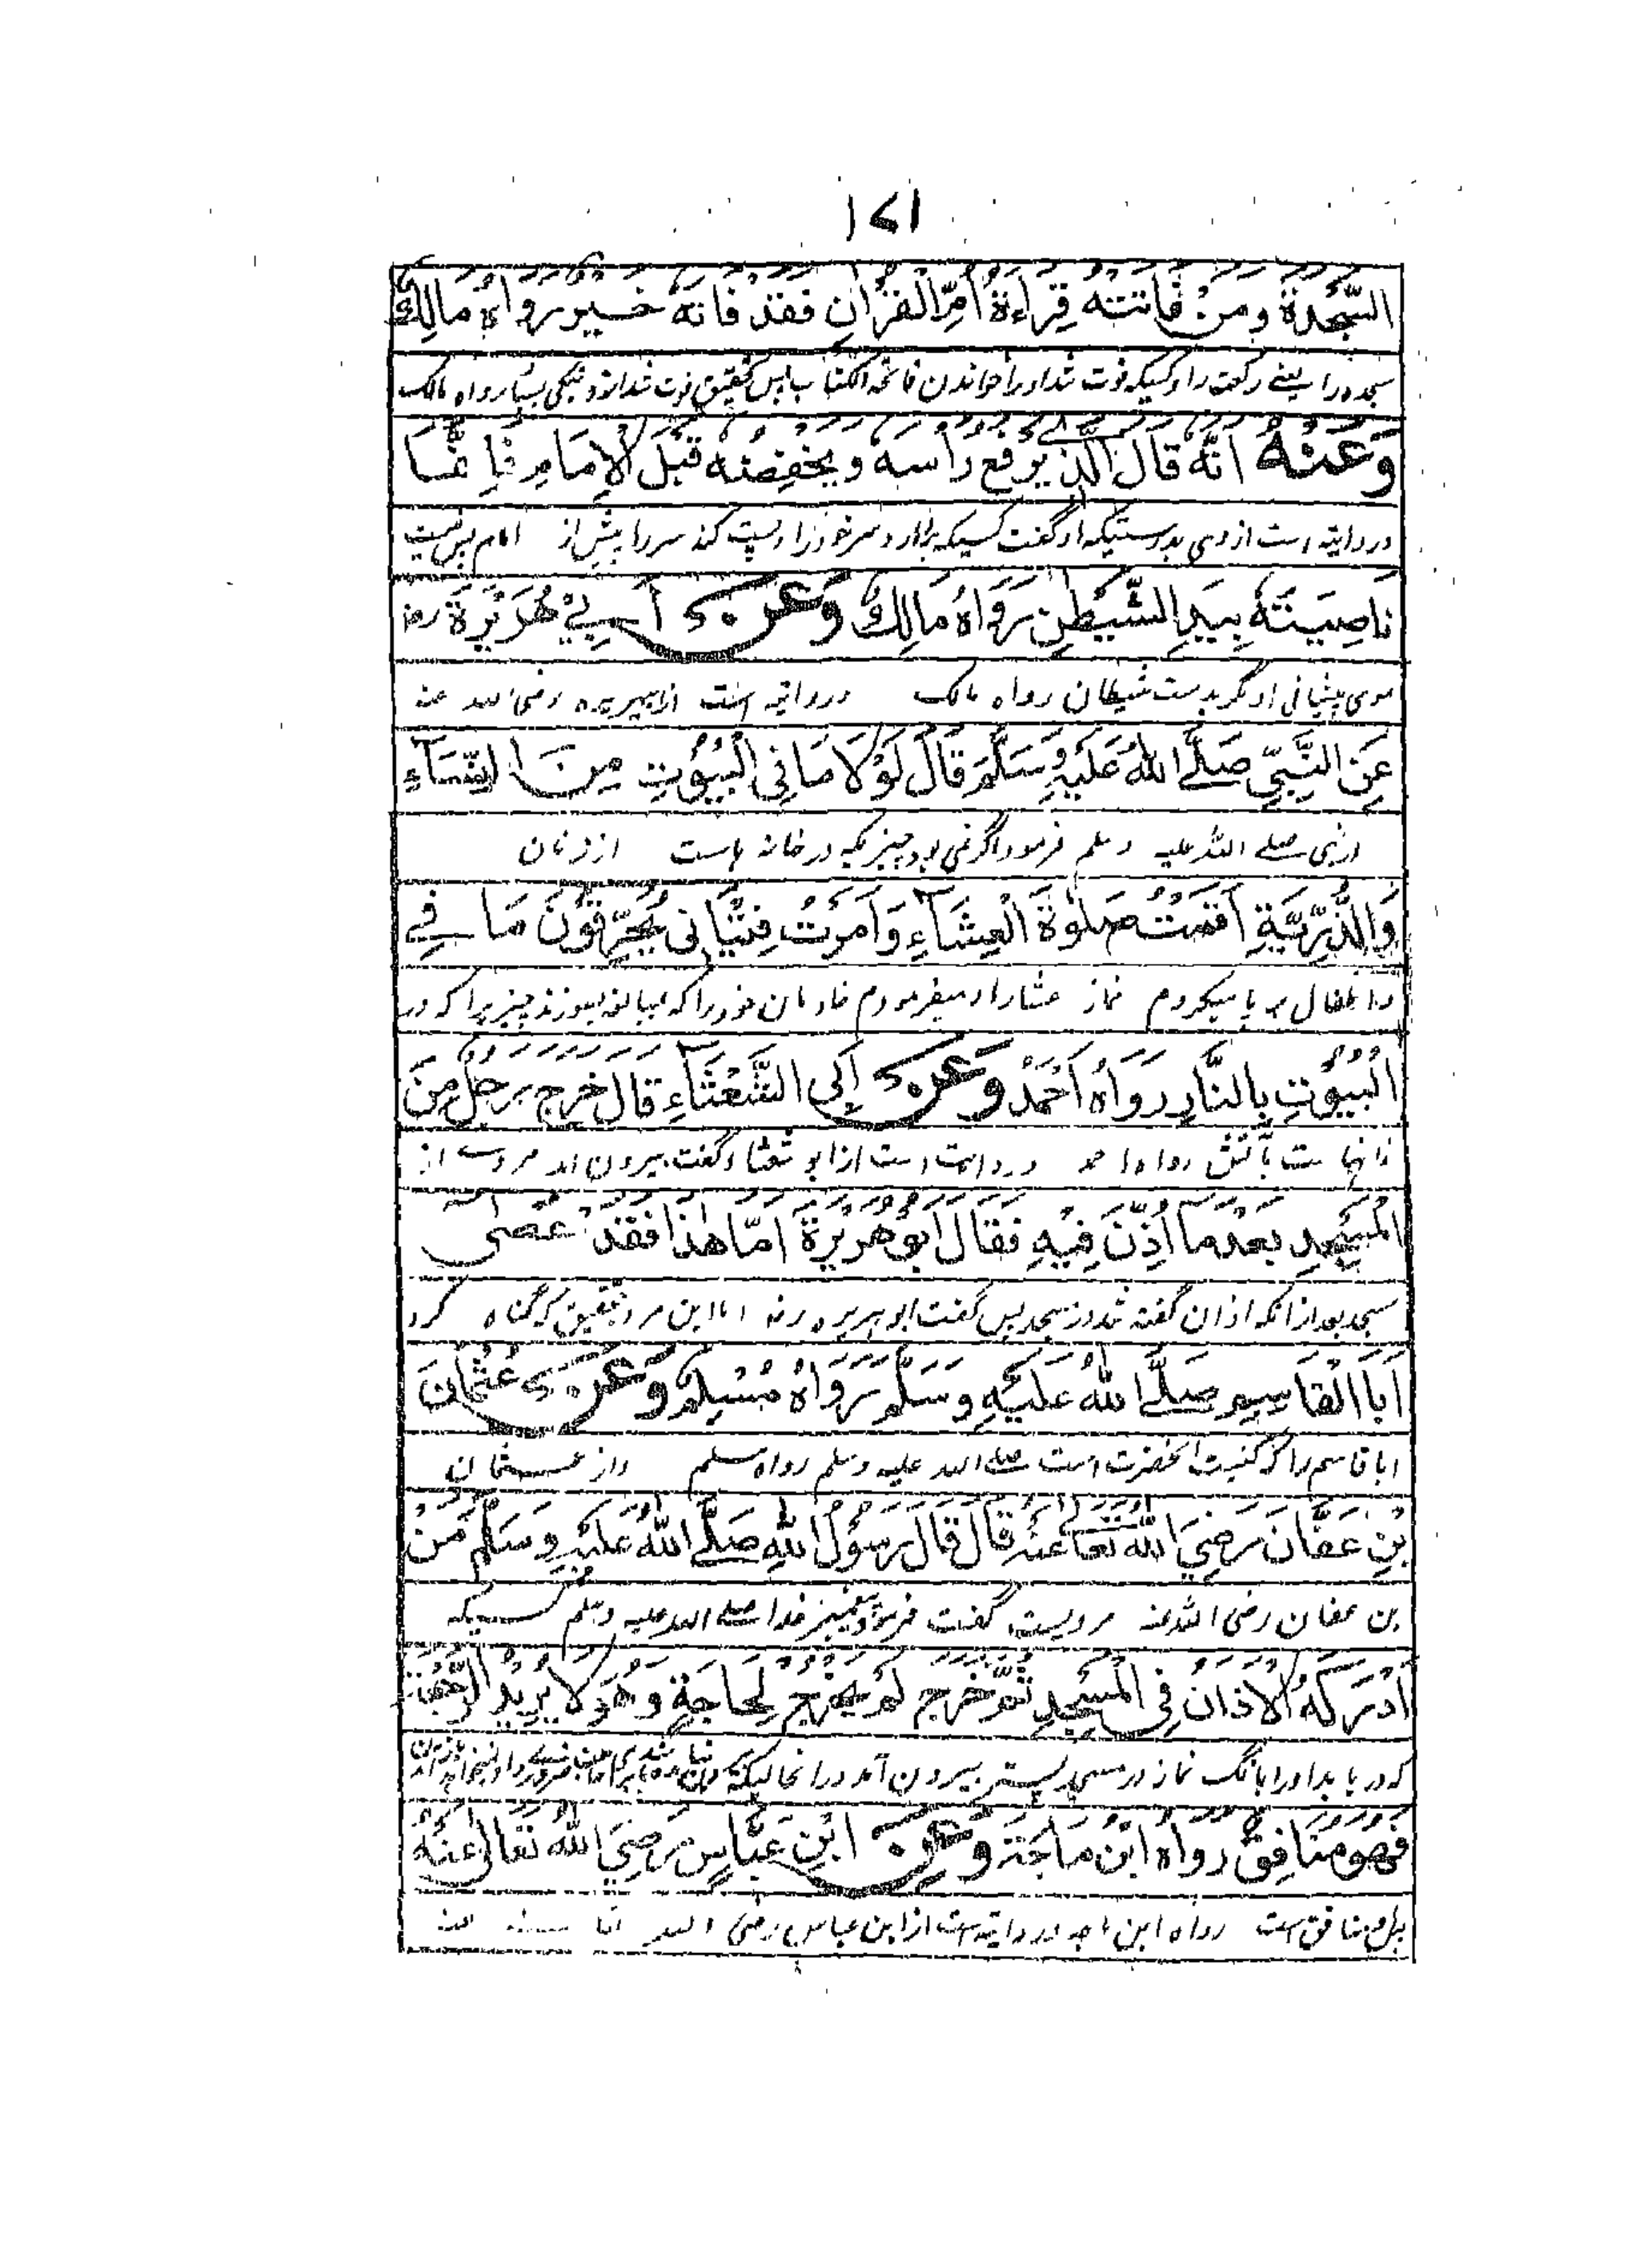 ۱۷۱
السَّجْدَةَ وَمَنْ فَاتَتْهُ قِرَاءَةُ اُمِّ الْقُرْاٰنِ فَقَدْ فَاتَهُ خَيْرٌ رَوَاهُ مَالِكٌ
سجده را یعنے رکعت را و کسیکه فوت شد اورا خواندن فاتحه الکتاب پس تحقیق فوت شد ازو نیکی بسیار رواه مالک
وَعَنْهُ اَنَّهُ قَالَ الَّذِيْ يَرْفَعُ رَاْسَهُ وَيَخْفِضُهُ قَبْلَ الْاِمَامِ فَاِنَّمَا
وروایته است از وی بدرستیکه او گفت کسیکه بردارد سر خود را و پست کند سر را پیش از امام پس نیست
نَاصِيَتُهُ بِيَدِ الشَّيْطٰنِ رَوَاهُ مَالِكٌ وَعَنْ اَبِيْ هُرَيْرَةَ رض
موی پیشانی او مگر بدست شیطان رواه مالک وروایته است از ابی هریره رضی الله عنه
عَنِ النَّبِيِّ صَلَّى اللهُ عَلَيْهِ وَسَلَّمَ قَالَ لَوْلَا مَا فِي الْبُيُوْتِ مِنَ النِّسَآءِ
از نبی صلے الله علیه وسلم فرمود اگر نمی بود چیزیکه در خانه هاست از زنان
وَالذُّرِّيَّةِ اَقَمْتُ صَلٰوةَ الْعِشَآءِ وَاَمَرْتُ فِتْيَانِيْ يُحَرِّقُوْنَ مَا فِي
و اطفال بر پا میکردم نماز عشا را و میفرمودم خادمان خود را که بمبالغه بسوزند چیزیرا که در
الْبُيُوْتِ بِالنَّارِ رَوَاهُ اَحْمَدُ وَعَنْ اَبِي الشَّعْثَآءِ قَالَ خَرَجَ رَجُلٌ مِنَ
خانها ست بآتش رواه احمد وروایت است از ابو شعثا و گفت بیرون آمد مردے از
الْمَسْجِدِ بَعْدَ مَا اُذِّنَ فِيْهِ فَقَالَ اَبُوْهُرَيْرَةَ اَمَّا هٰذَا فَقَدْ عَصٰى
مسجد بعد ازانکه اذان گفته شد در مسجد پس گفت ابو هریره رض اما این مرد تحقیق که گناه کرد
اَبَا الْقَاسِمِ صَلَّى اللهُ عَلَيْهِ وَسَلَّمَ رَوَاهُ مُسْلِمٌ وَعَنْ عُثْمَانَ
ابا قاسم را که کنیت آنحضرت است صلے الله علیه وسلم رواه مسلم و از عثمان
بْنِ عَفَّانَ رَضِيَ اللهُ تَعَالٰى عَنْهُ قَالَ قَالَ رَسُوْلُ اللهِ صَلَّى اللهُ عَلَيْهِ وَسَلَّمَ مَنْ
بن عفان رضی الله عنه مرویست گفت فرمود پیغمبر خدا صلے الله علیه وسلم کسیکه
اَدْرَكَهُ الْاَذَانُ فِي الْمَسْجِدِ ثُمَّ خَرَجَ لَمْ يَخْرُجْ لِحَاجَةٍ وَهُوَ لَا يُرِيْدُ الرَّجْعَةَ
که دریابد اورا بانگ نماز در مسجد پستر بیرون آمد درانحالیکه
فَهُوَ مُنَافِقٌ رَوَاهُ ابْنُ مَاجَةَ وَعَنْ ابْنِ عَبَّاسٍ رَضِيَ اللهُ تَعَالٰى عَنْهُ
منافق است رواه ابن ماجه وروایته است از ابن عباس رضی الله عنه